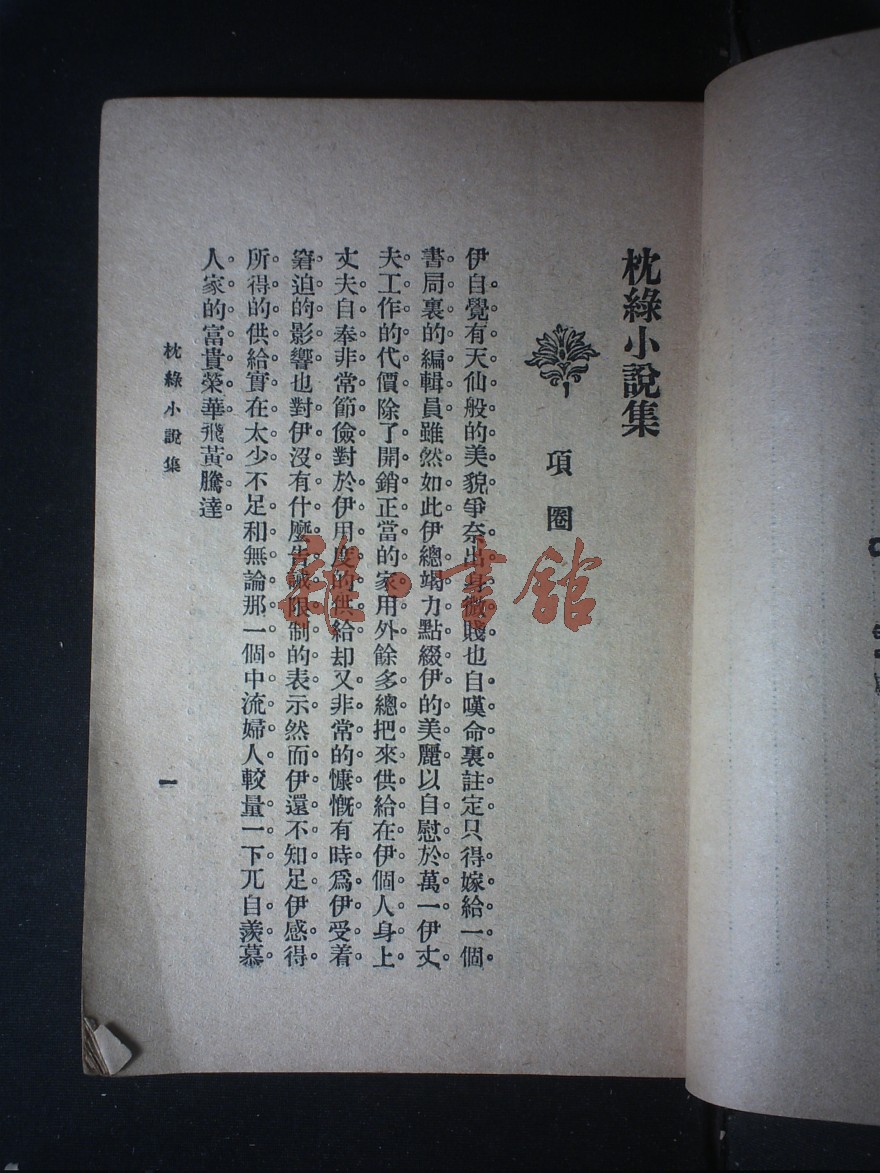 枕綠小說集
項圈
伊自覺有天仙般的美貌爭奈出身微賤也自嘆命裏註定只得嫁給一個
書局裏的編輯員雖然如此伊總竭力點綴伊的美麗以自慰於萬一伊丈
夫工作的代價除了開銷正當的家用外餘多總把來供給在伊個人身上
丈夫自奉非常節儉對於伊用度的供給却又非常的慷慨有時爲伊受着
窘迫的影響也對伊沒有什麼告誡限制的表示然而伊還不知足伊感得
所得的供給實在太少不足和無論那一個中流婦人較量一下兀自羨慕
人家的富貴榮華飛黃騰達
枕綠小說集
一
雜·書館